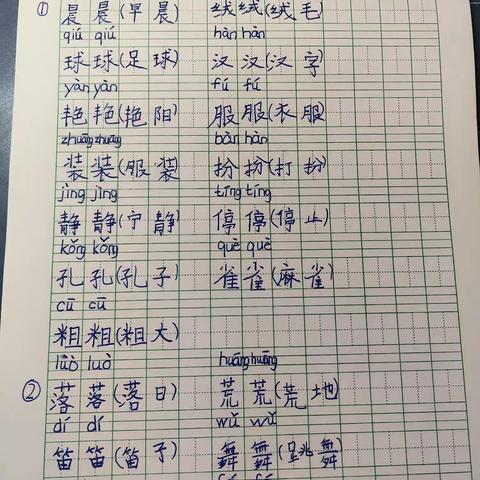 ① 晨 晨(早 晨) 绒 绒(绒 毛)
qiú qiú hàn hàn
球 球(足 球) 汉 汉(汉 字)
yàn yàn fú fú
艳 艳(艳 阳) 服 服(衣 服)
zhuāng zhuāng bàn hàn
装 装(服 装) 扮 扮(打 扮)
jìng jìng tíng tíng
静 静(宁 静) 停 停(停 止)
kǒng kǒng què què
孔 孔(孔 子) 雀 雀(麻 雀)
cū cū
粗 粗(粗 大)
luò luò huāng huāng
② 落 落(落 日) 荒 荒(荒 地)
dí dí wǔ wǔ
笛 笛(笛 子) 舞 舞(跳 舞)